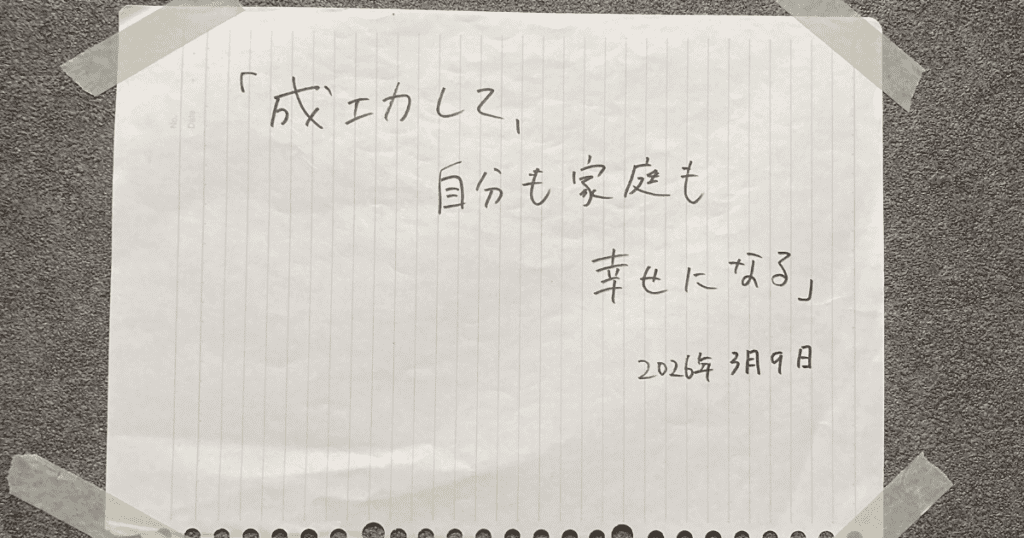 「成功して,
自分も家庭も
幸せになる」
2026年3月9日